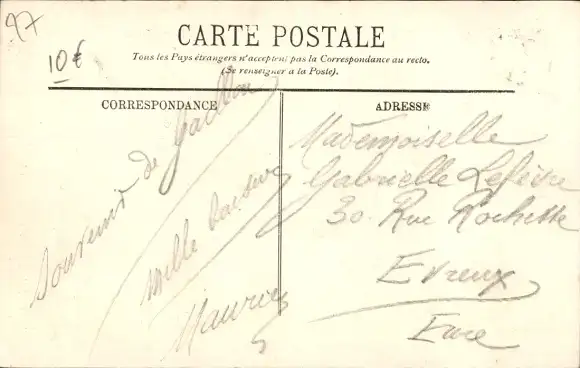 97
10€
CARTE POSTALE
Tous les Pays étrangers n'acceptent pas la Correspondance au recto.
(Se renseigner à la Poste).
CORRESPONDANCE
Souvenir de Gaillon
Mille baisers
Maurice
ADRESSE
Mademoiselle
Gabrielle Lefèvre
30 Rue Rochette
Evreux
Eure